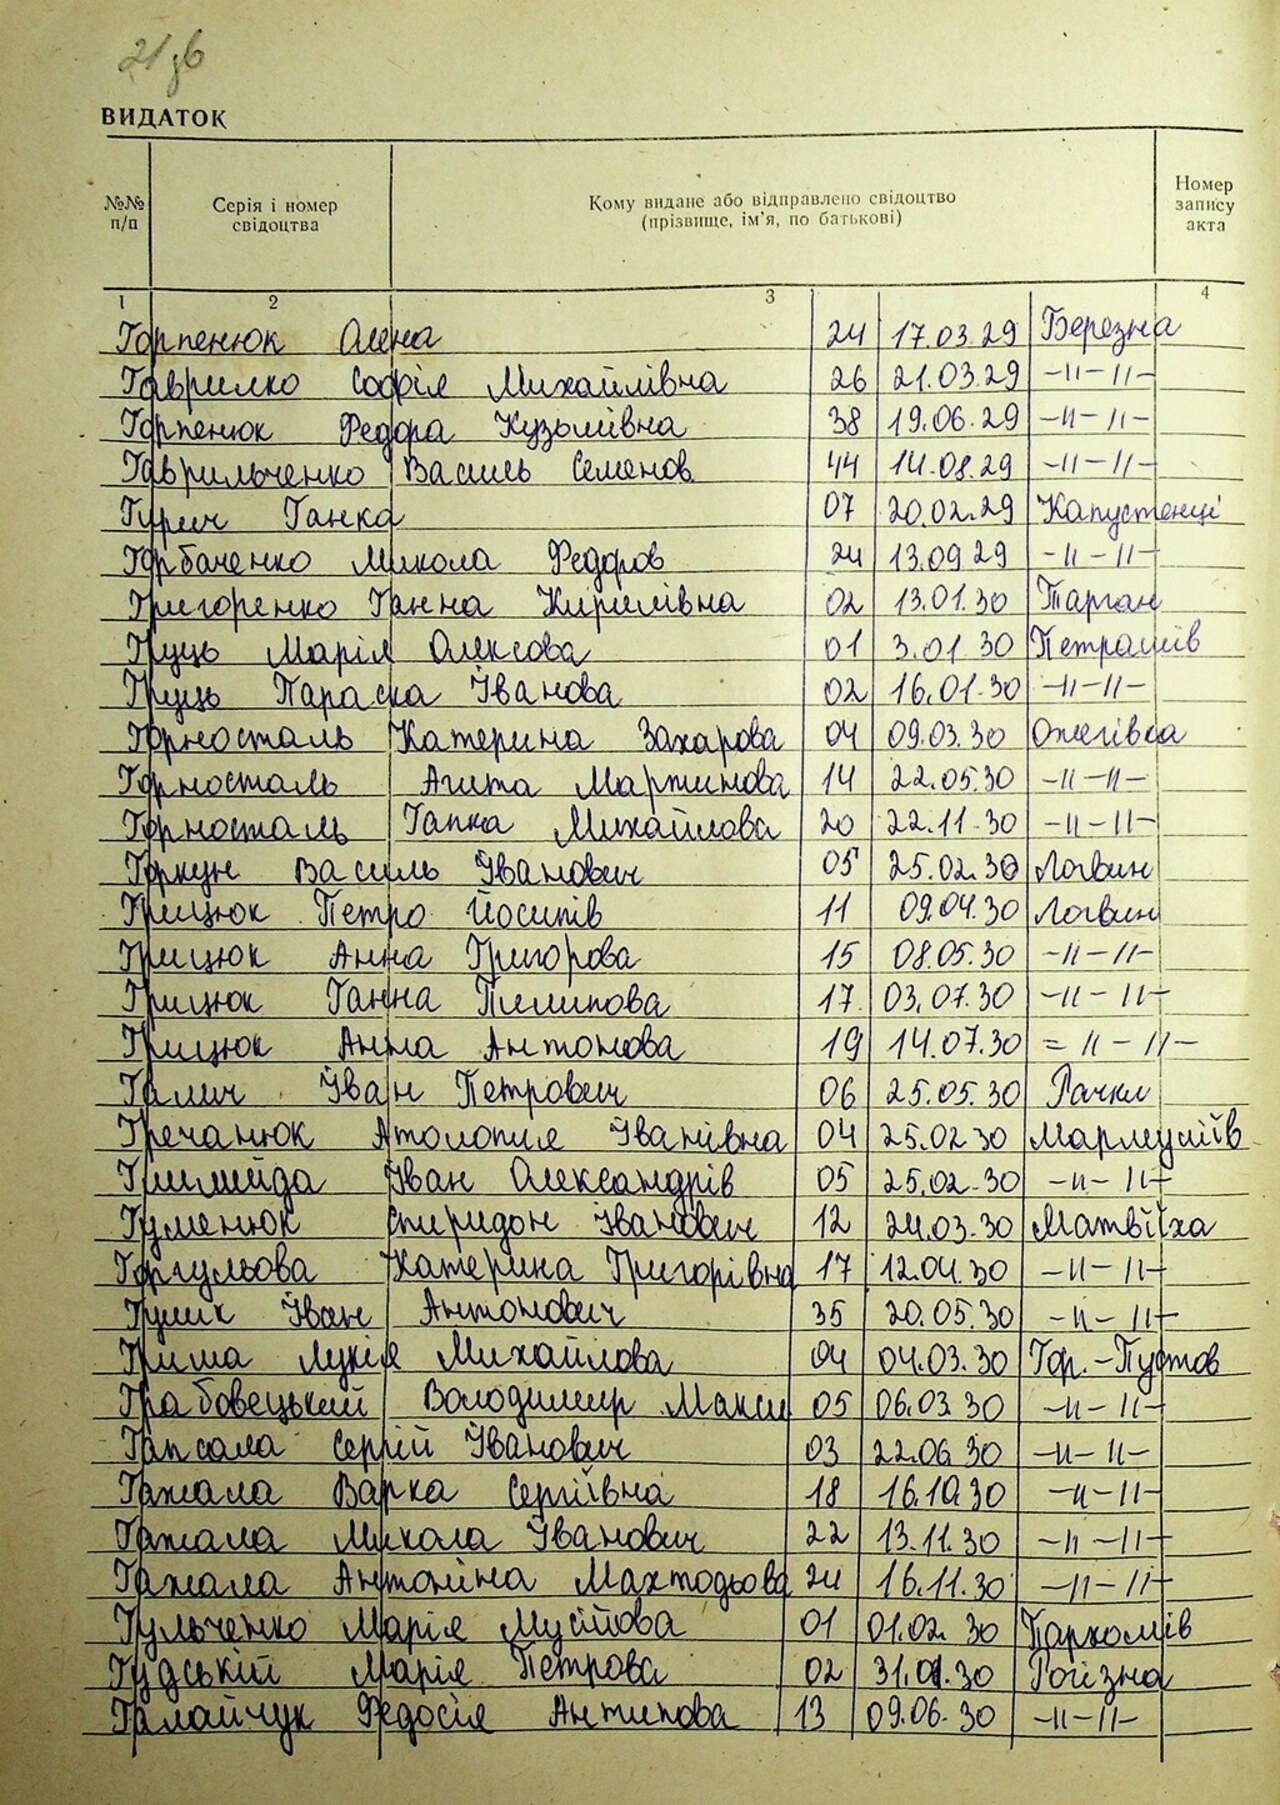 21зв
ВИДАТОК
№№ п/п Серія і номер свідоцтва Кому видане або відправлено свідоцтво (прізвище, ім'я, по батькові) Номер запису акта
1 2 3 4
Горпенюк Олена 24 17.03.29 Березна
Гаврилко Софія Михайлівна 26 21.03.29 -//-//-
Горпенюк Федора Кузьмівна 38 19.06.29 -//-//-
Гаврильченко Василь Семенов 44 14.08.29 -//-//-
Гурич Ганка 07 20.02.29 Капустенці
Горбаченко Микола Федоров 24 13.09 29 -//-//-
Григоренко Ганна Кирилівна 02 13.01.30 Тарган
Груць Марія Олексова 01 3.01 30 Петрашів
Груць Параска Іванова 02 16.01.30 -//-//-
Горносталь Катерина Захарова 04 09.03.30 Ожегівка
Горносталь Агита Мартинова 14 22.05.30 -//-//-
Горносталь Гапка Михайлова 20 22.11.30 -//-//-
Горкун Василь Іванович 05 25.02.30 Логвин
Грицюк Петро Йосипів 11 09.04.30 Логвин
Грицюк Анна Григорова 15 08.05.30 -//-//-
Грицюк Ганна Пилипова 17 03.07.30 -//-//-
Грицюк Анна Антонова 19 14.07.30 =//-//-
Галич Іван Петрович 06 25.05.30 Рачки
Гречанюк Атолопия Іванівна 04 25.02 30 Мармуліїв
Іван Олександрів 05 25.02.30 -//-//-
Гуменюк Спиридон Іванович 12 24.03.30 Матвіїха
Горгульова Катерина Григорівна 17 12.04.30 -//-//-
Іван Антонович 35 20.05.30 -//-//-
Гриша Лукія Михайлова 04 04.03.30 Гор.-Пустов
Грабовецький Володимир Макси 05 06.03.30 -//-//-
Гапсала Сергій Іванович 03 22.06 30 -//-//-
Гажала Варка Сергіївна 18 16.10.30 -//-//-
Гажала Микола Іванович 22 13.11.30 -//-//-
Гажала Антоніна Махтодьова 24 16.11.30 -//-//-
Гульченко Марія Мусійова 01 01.02. 30 Пархомів
Гудській Марія Петрова 02 31.01.30 Рогізна
Галайчук Федосія Антипова 13 09.06.30 -//-//-